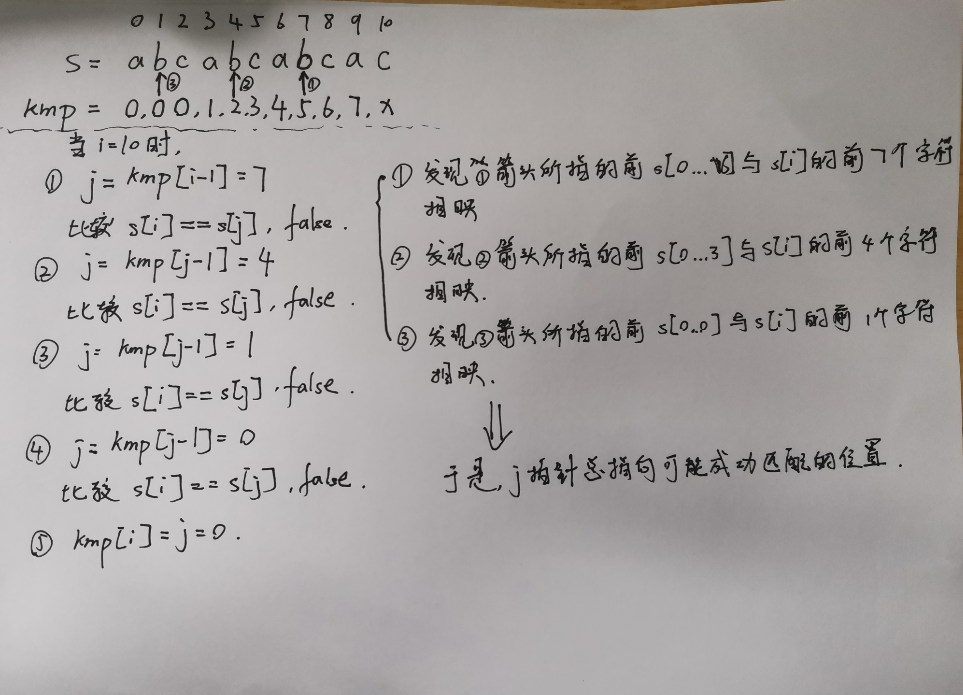 0 1 2 3 4 5 6 7 8 9 10
S = a b c a b c a b c a c
↑③ ↑② ↑①
kmp = 0,0 0,1,2,3,4,5,6,7,x
当 i=10 时,
① j = kmp[i-1] = 7
比较 s[i]==s[j], false.
② j = kmp[j-1] = 4
比较 s[i]== s[j], false.
③ j= kmp[j-1] = 1
比较 s[i]== s[j], false.
④ j= kmp[j-1]= 0
比较 s[i]== s[j], false.
⑤ kmp[i]=j=0.
① 发现①箭头所指的前 s[0...6]与 s[i]的前 7个字符
相映
② 发现②箭头所指的前 s[0...3]与s[i]的前4个字符
相映.
③ 发现③箭头所指的前 s[0..0]与s[i]的前1个字符
相映.
⇓
于是, j指针总指向可能成功匹配的位置.